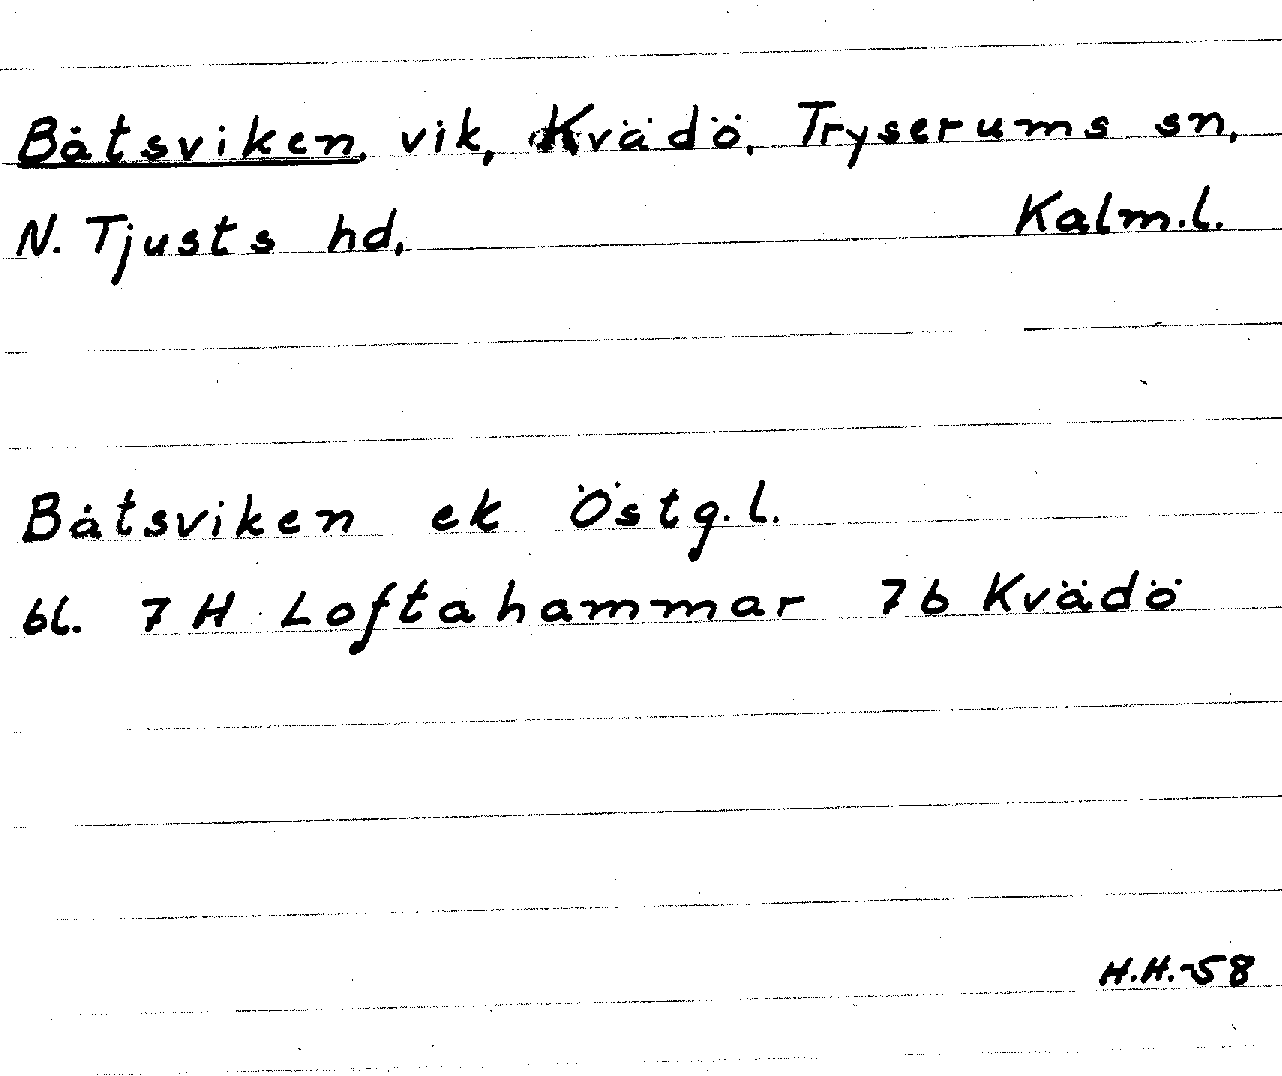 Båtsviken, vik, Kvädö, Tryserums sn,
N. Tjusts hd, Kalm.l.
Båtsviken ek Östg.l.
bl. 7 H Loftahammar 7b Kvädö
H.H.-58